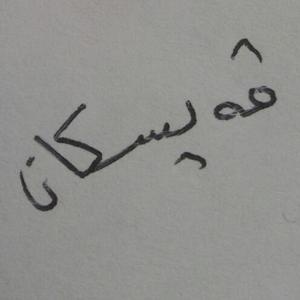 ڤەپسکان